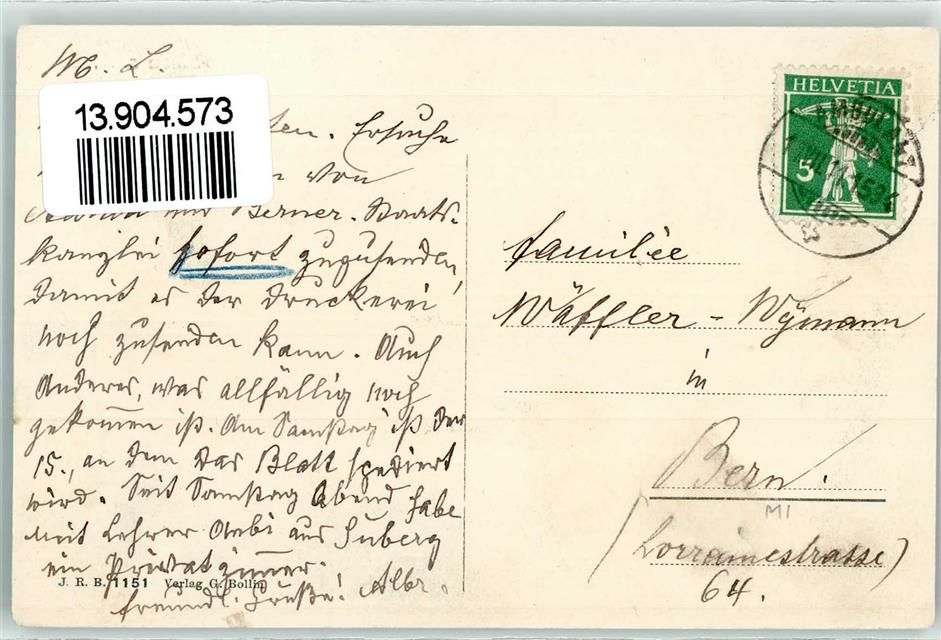 M. L.
13.904.573
Ersuche
von
und Berner. Staats-
kanzlei sofort zuzusenden,
damit es der Druckerei
noch zusenden kann. Auch
Anderes, was allfällig noch
gekommen ist. Am Samstag ist der
15., an dem das Blatt spediert
wird. Seit Samstag Abend habe
mit Lehrer Aebi aus Suberg
ein Privatzimmer.
freundl. Grüße! Albr.
J. R. B. 1151 Verlag G. Bollin
HELVETIA
5
Familie
Wäffler - Wymann
in
Bern.
MI
(Lorrainestrasse)
64.